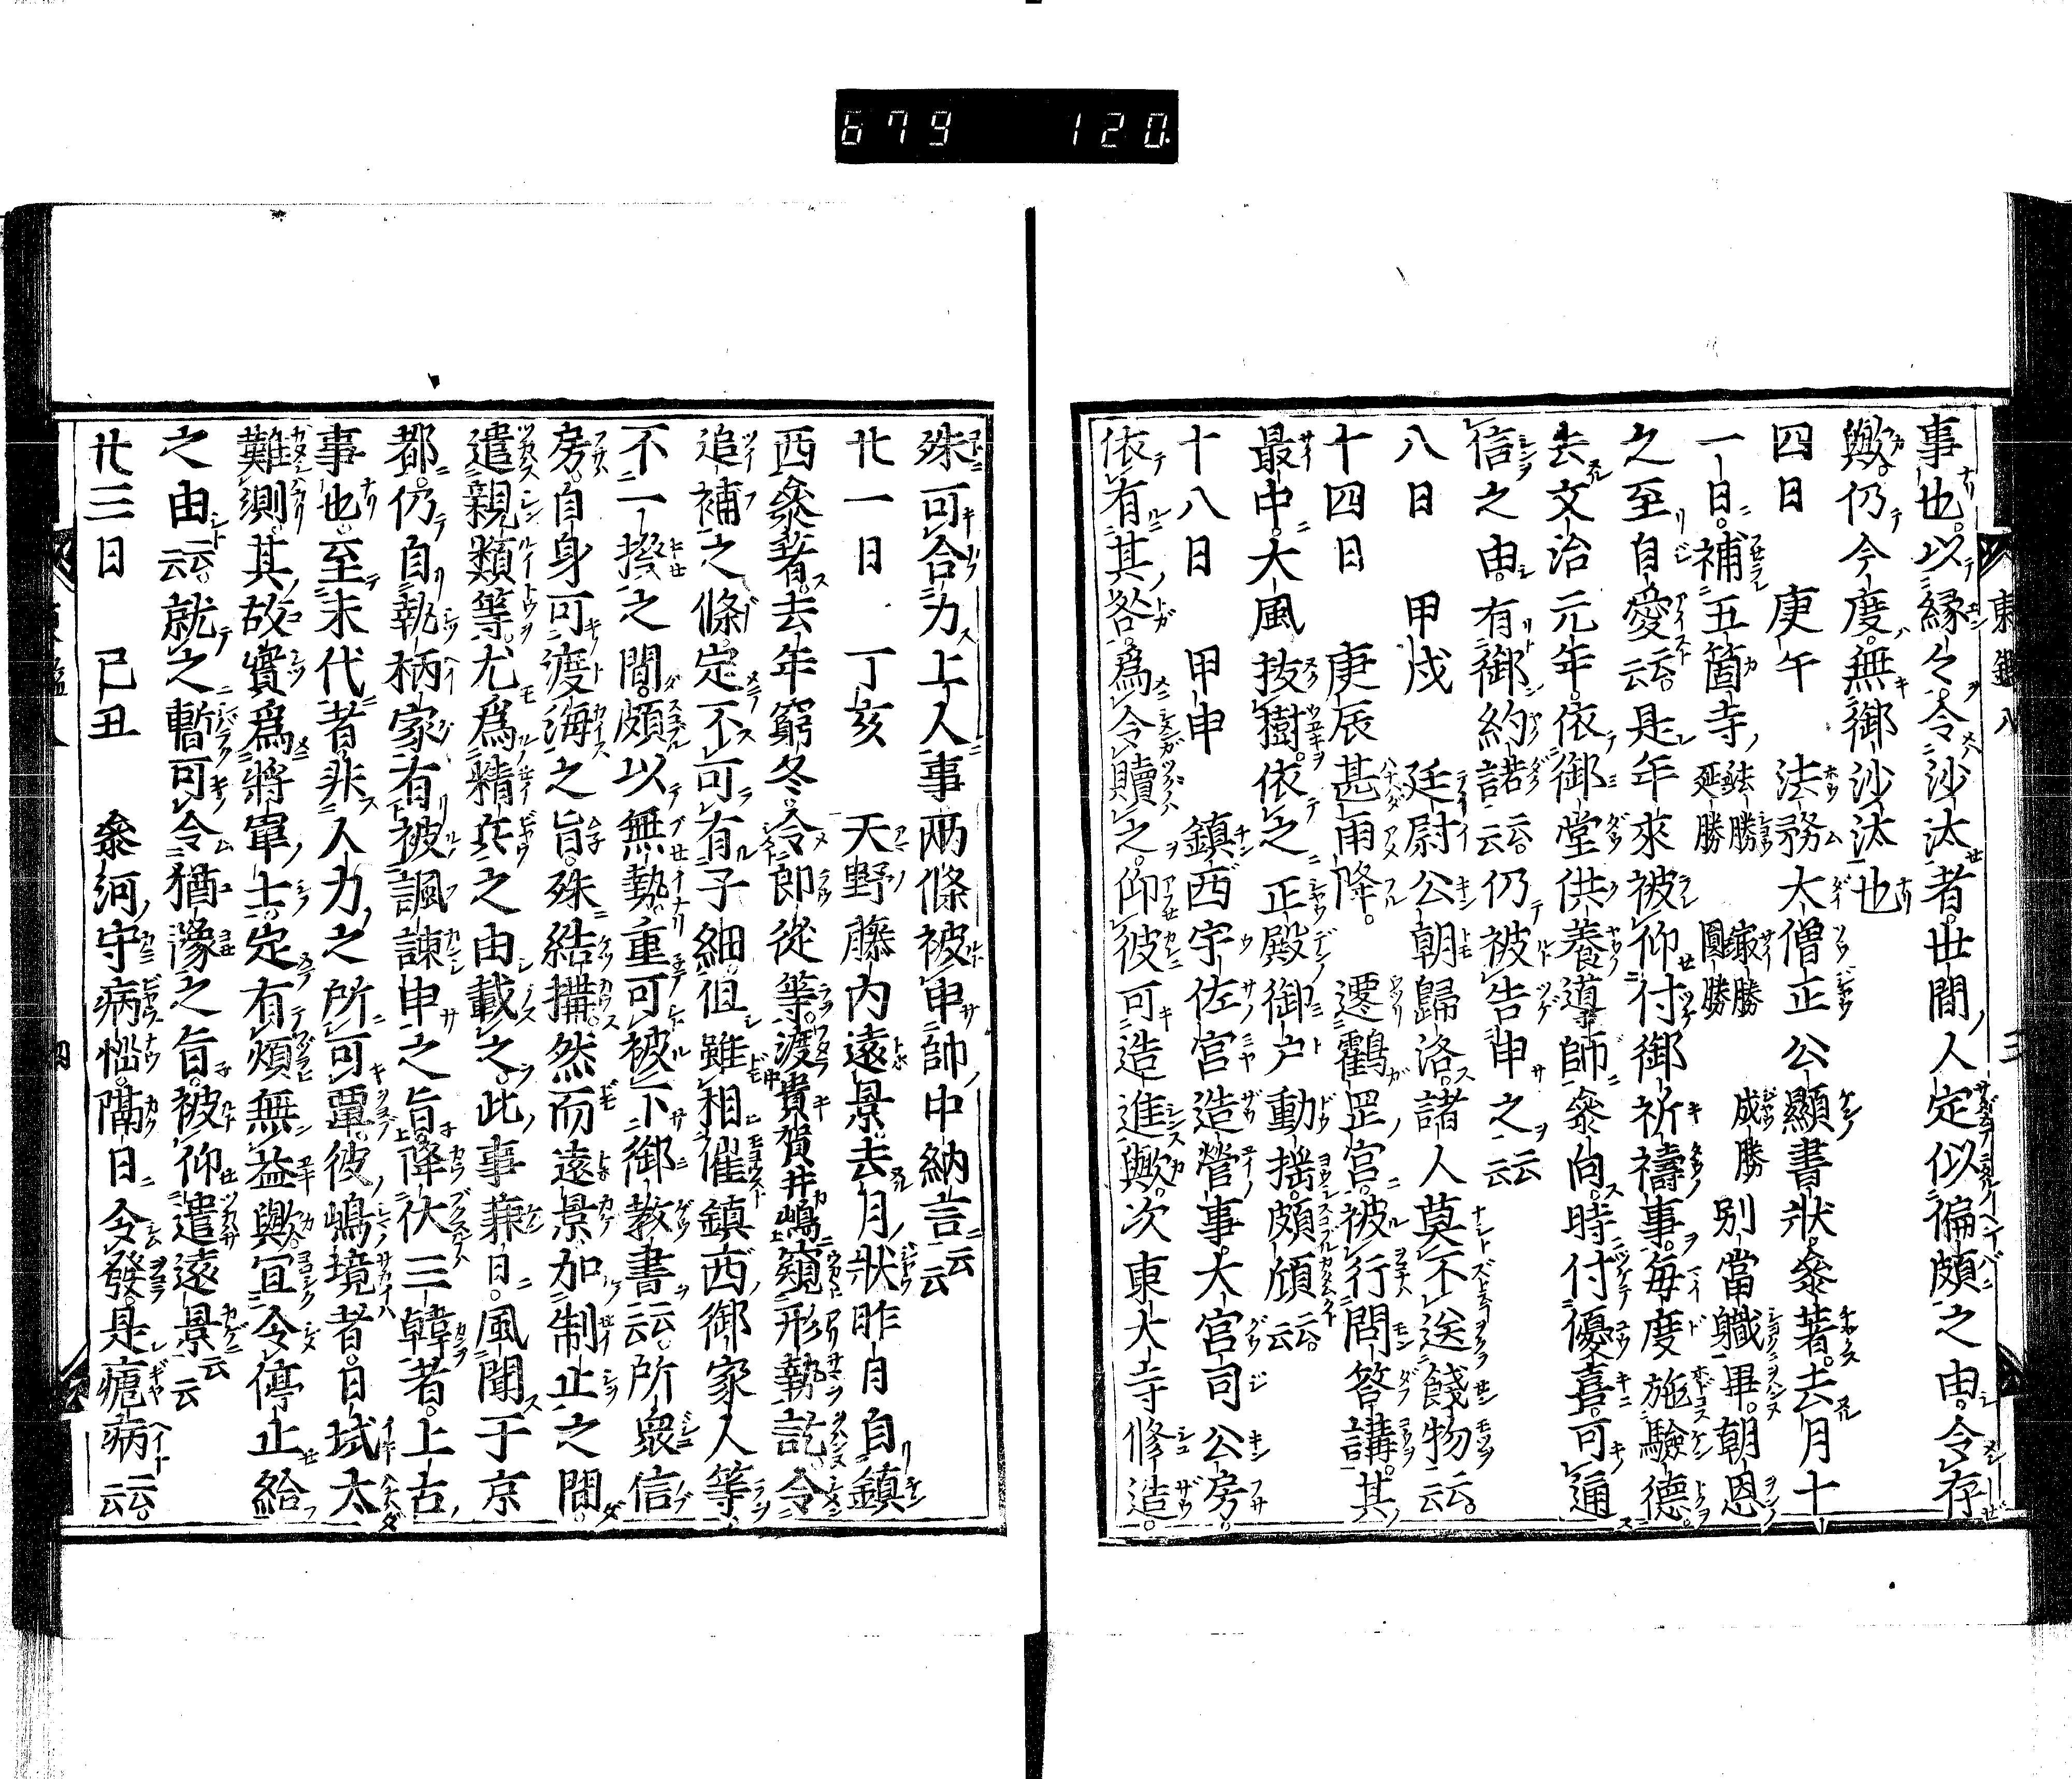 679 120
東鑑八
三
事也以縁々令沙汰者世間人定似偏頗之由令存
歟仍今度無御沙汰也
四日 庚午 法務大僧正公顯書状參著去月十
一日補五箇寺法勝延勝最勝圓勝成勝別當職畢朝恩
之至自愛云云是年來被仰付御祈禱事毎度施驗德
去文治元年依御堂供養導師參向時付優喜可通
信之由有御約諾云云仍被告申之云云
八日 甲戌 廷尉公朝歸洛諸人莫不送餞物云云
十四日 庚辰甚雨降 遷鶴罡宮被行問答講其
最中大風拔樹依之正殿御戸動揺頗傾云云
十八日 甲申 鎮西宇佐宮造營事大宮司公房
依有其咎爲令贖之仰彼可造進歟次東大寺修造
殊可合力上人事兩條被申帥中納言云云
廿一日 丁亥 天野藤内遠景去月狀昨日自鎮
西參著去年窮冬令郎從等渡貴賀井嶋窺形勢訖令
追補之條定不可有子細但雖相催鎮西御家人等
不一揆之間頗以無勢重可被下御教書云云所衆信
房自身可渡海之旨殊結搆然而遠景加制止之間
遣親類等尤爲精兵之由載之此事兼日風聞于京
都仍自執柄家有被諷諫申之旨降伏三韓者上古
事也至末代者非人力之所可覃彼嶋境者日域太
難測其故實爲將軍士定有煩無益歟宜令停止給
之由云云就之暫可令猶豫之旨被仰遣遠景云云
廿三日 已丑 參河守病惱隔日令發是瘧病云云